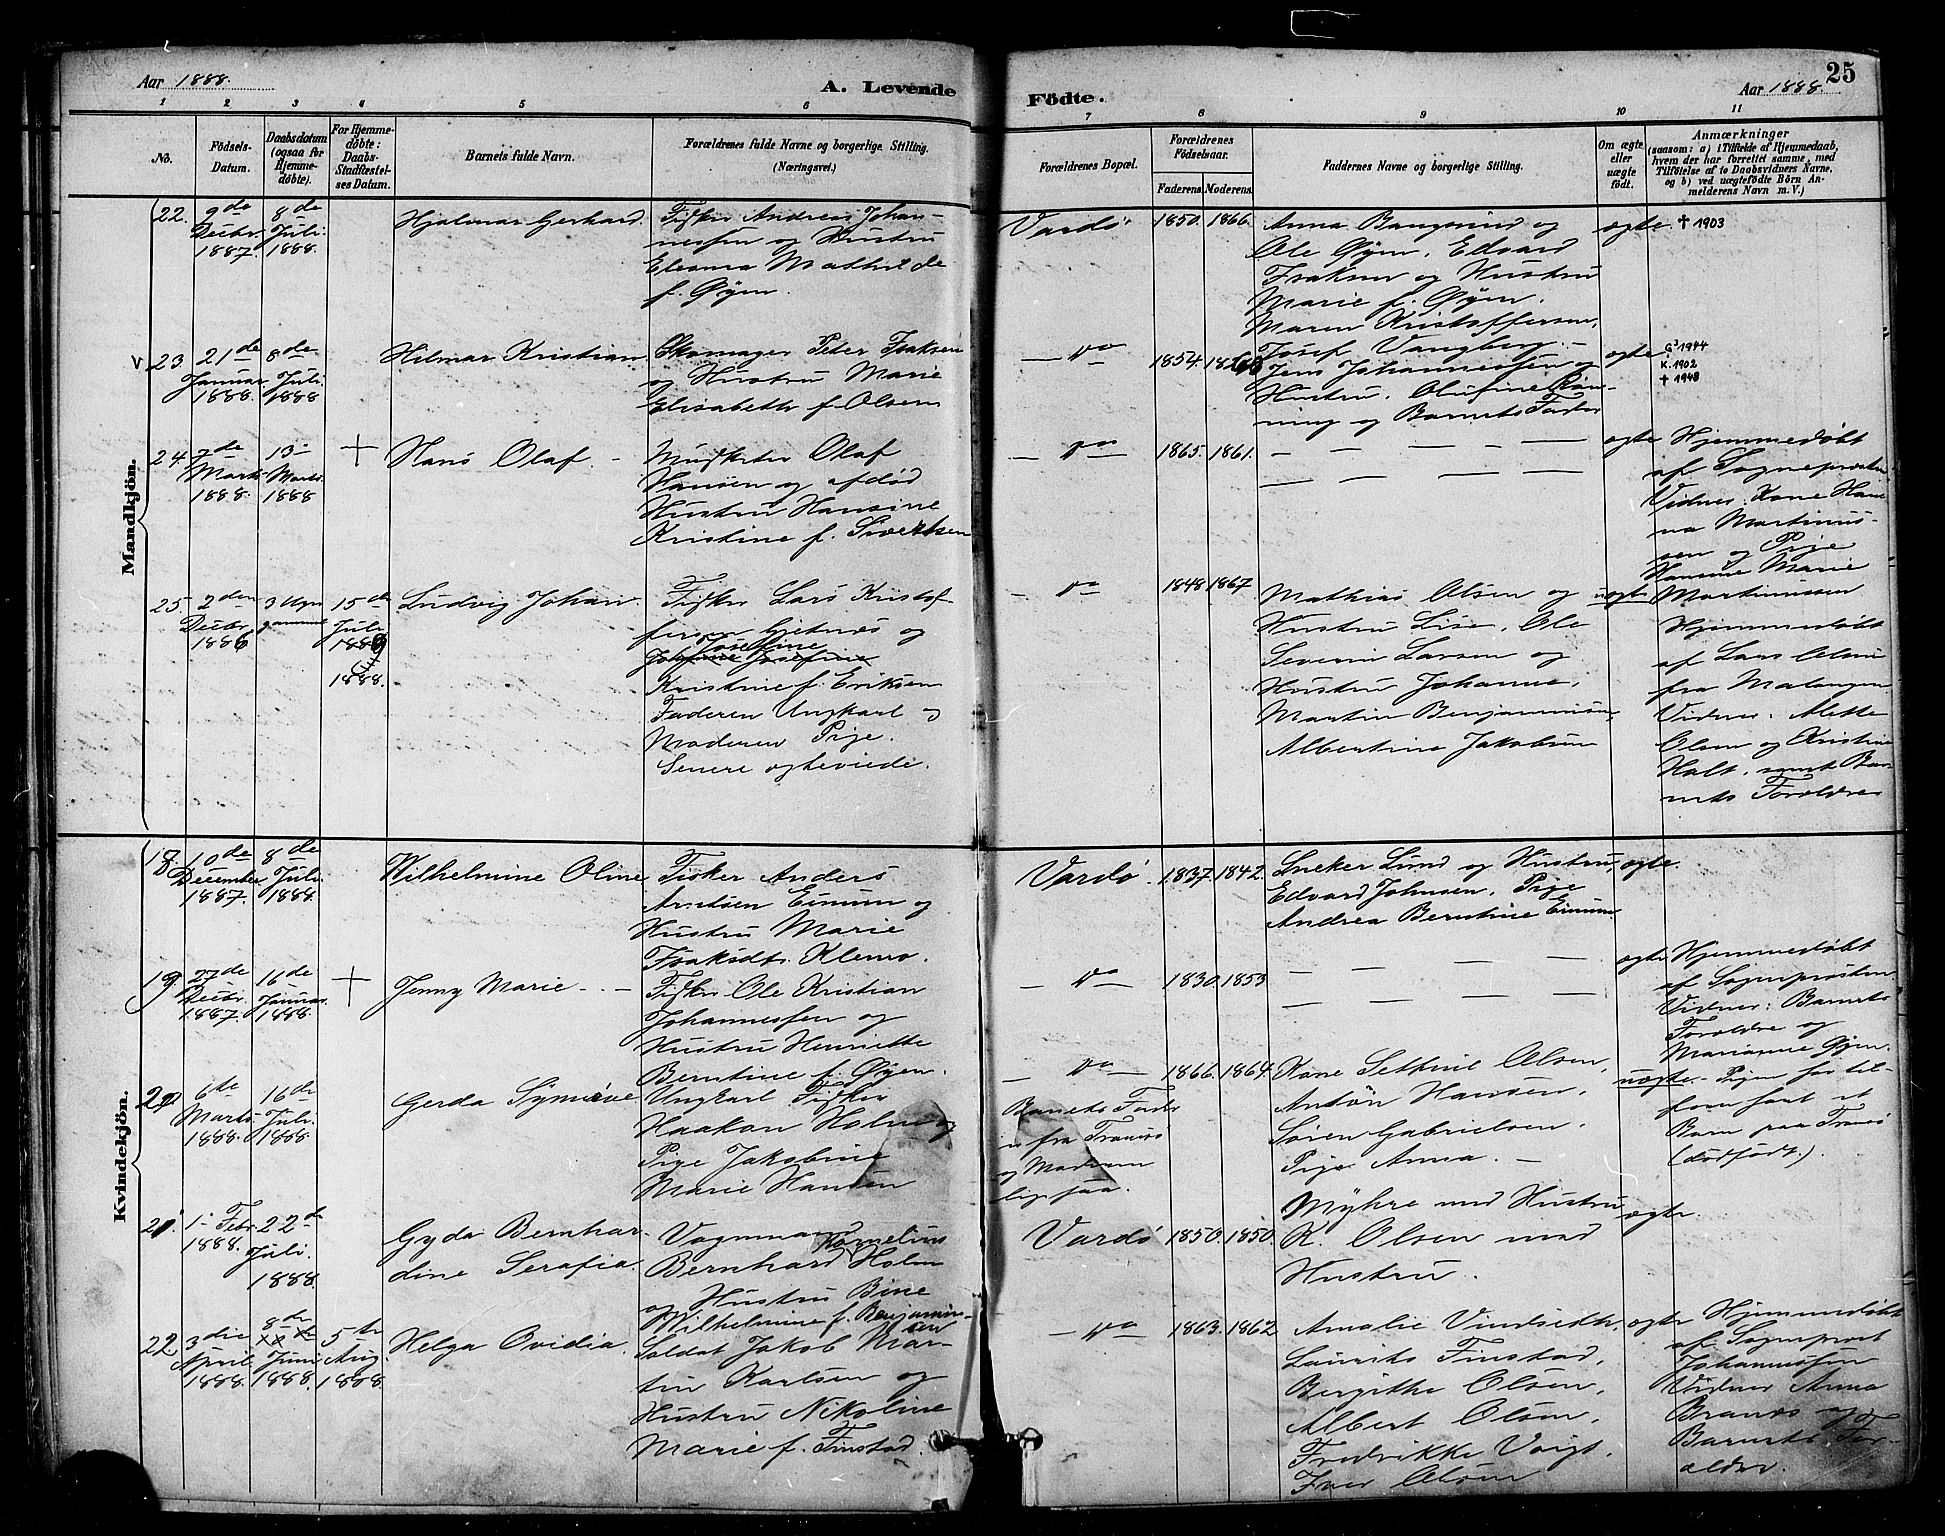 Aar 1888.
A. Levende
Födte.
Aar 1888.
25
1
2
3
4
5
6
7
8
9
10
11
No.
Födsels-
Datum.
Daabsdatum
(ogsaa for
Hjemme-
døbte).
For Hjemme-
døbte:
Daabs-
Stadfæstel-
ses Datum.
Barnets fulde Navn.
Forældrenes fulde Navne og borgerlige Stilling.
(Næringsvei.)
Forældrenes Bopæl.
Forældrenes
Födselsaar.
Faderens.
Moderens.
Faddernes Navne og borgerlige Stilling.
Om ægte
eller
uægte
födt.
Anmærkninger
(saasom: a) i Tilfælde af Hjemmedaab,
hvem der har forrettet samme, med
Tilföielse af to Daabsvidners Navne,
og b) ved uægtefödte Börn An-
melderens Navn m. V.)
Mandkjön.
22.
9de
Decbr.
1887.
8de
Juli
1888.
Hjalmar Gerhard
Fisker Andreas Johan-
nessen og Hustru
Eleanora Mathilde
f. Øyen.
Vardø
1850.
1866.
Anna Bangsund og
Ole Øyen, Edvard
Isaksen og Hustru
Marie f. Øyen.
Maren Kristoffersen.
ægte.
† 1903
v 23.
21de
Januar
1888.
8de
Juli
1888
Hilmar Kristian
Skomager Peter Isaksen
og Hustru Marie
Elisabeth f. Olsen
— do —
1854.
Josef Vangberg —
Jens Johannessen og
Hustru, Olufine Røn-
ning og Barnets Fader
ægte
G 3/ 1944
K. 1902
† 1948
24.
7de
Marts
1888.
13
Marts
1888
+
Hans Olaf. —
Musketer Olaf
Hansen og afdød
Hustru Hansine
Kristine f. Sivertsen
— do —
1865.
1861.
— — — —
ægte
Hjemmedøbt
af Sognepresten
Vidner: Kone Han-
na Martinus-
sen og Pige
Hansine Marie
Martinussen
25.
2den
Decbr.
1886
3 Ugr
gammel
15de
Juli
1888.
Ludvig Johan.
Fisker Lars Kristof-
fersen Gjetnæs og
Josefine
Kristine f. Eriksen
Faderen Ungkarl og
Moderen Pige.
Senere ægteviede.
— do
1848
1867
Mathias Olsen og
Hustru Lise, Ole
Severin Larsen og
Hustru Johanne,
Martin Benjaminsen,
Albertine Jakobsen
uægte
Hjemmedøbt
af Lars Olsen
fra Malangen
Vidner: Alette
Olsen og Kristine
Holt, samt Bar-
nets Forældre
Kvindekjön.
18.
10de
December
1887.
8de
Juli
1888.
Wilhelmine Oline
Fisker Anders
Arntsen Einum og
Hustru Marie
Isaksdtr. Klemo.
Vardø.
1837.
1842.
Sneker Lund og Hustru,
Edvard Johnsen. Pige
Andrea Berntine Einum
ægte.
19.
27de
Decbr.
1887.
16de
Januar
1888.
+
Jenny Marie — —
Fisker Ole Kristian
Johannessen og
Hustru Henriette
Berntine f. Øyen.
— do —
1830.
1853
— — — —
ægte
Hjemmedøbt
af Sognepresten
Vidner: Barnets
Forældre og
Marianne Øyen.
20
6te
Marts
1888.
16de
Juli.
1888.
Gerda Synøve
Ungkarl Fisker
Haakon Holm og
Pige Jakobine
Marie Hansen
— do —
Barnets Fader
er fra Tranøs
og Moderen
ligesaa.
1866.
1864.
Kone Olsen,
Anton Hansen,
Søren Gabrielsen.
Pige Anna. —
uægte
Pigen har til-
forn født et
Barn paa Tranøs
(dødfødt.).
21
1. Febr.
1888.
22de
Juli.
1888.
Gyda Bernhar-
dine Serafia.
Vognmand
Kornelius
Bernhard Holm
og Hustru Bine
Wilhelmine f. Benjamin-
sen
Vardø
1850.
1850.
Myhre med Hustru
K. Olsen med
Hustru.
ægte.
22
3die
April
1888.
8de
Juni
1888.
5te
Aug.
1888.
Helga Ovidia.
Soldat Jakob Mar-
tin Karlsen og
Hustru Nikoline
Marie f. Finstad.
— do —
1863.
1862
Amalie Vindsedth,
Laurits Finstad,
Bergithe Olsen,
Albert Olsen,
Fredrikke Voigt.
Iver Olsen
ægte
Hjemmedøbt
af Sogneprest
Johannessen
Vidner Anna
Brands og
Barnets For-
ældre.